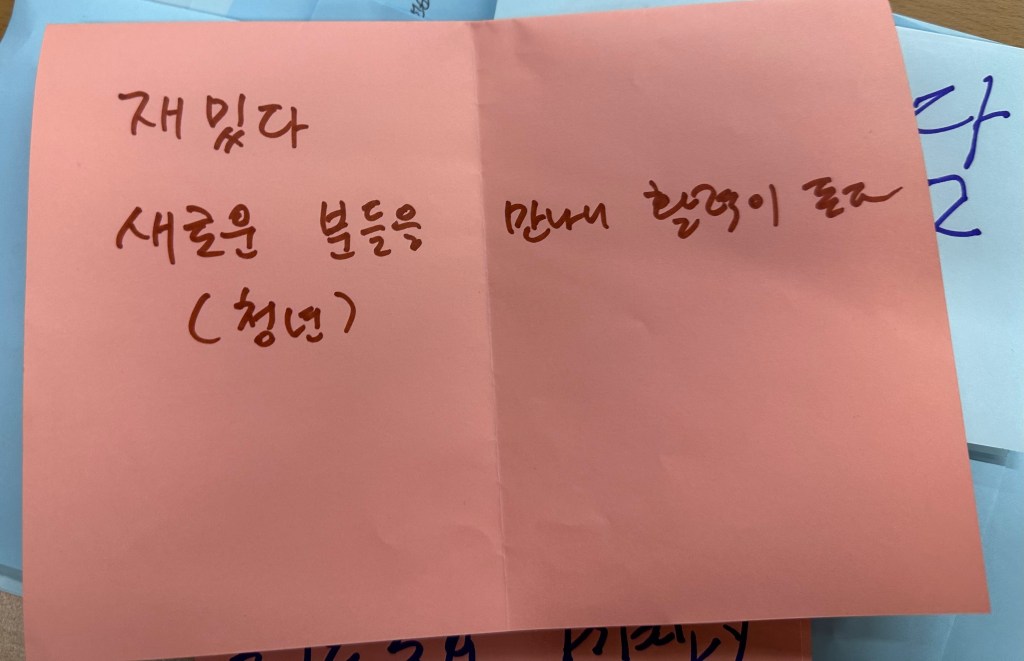 재밌다
새로운 분들을 만나니 활력이 돈다
(청년)
다